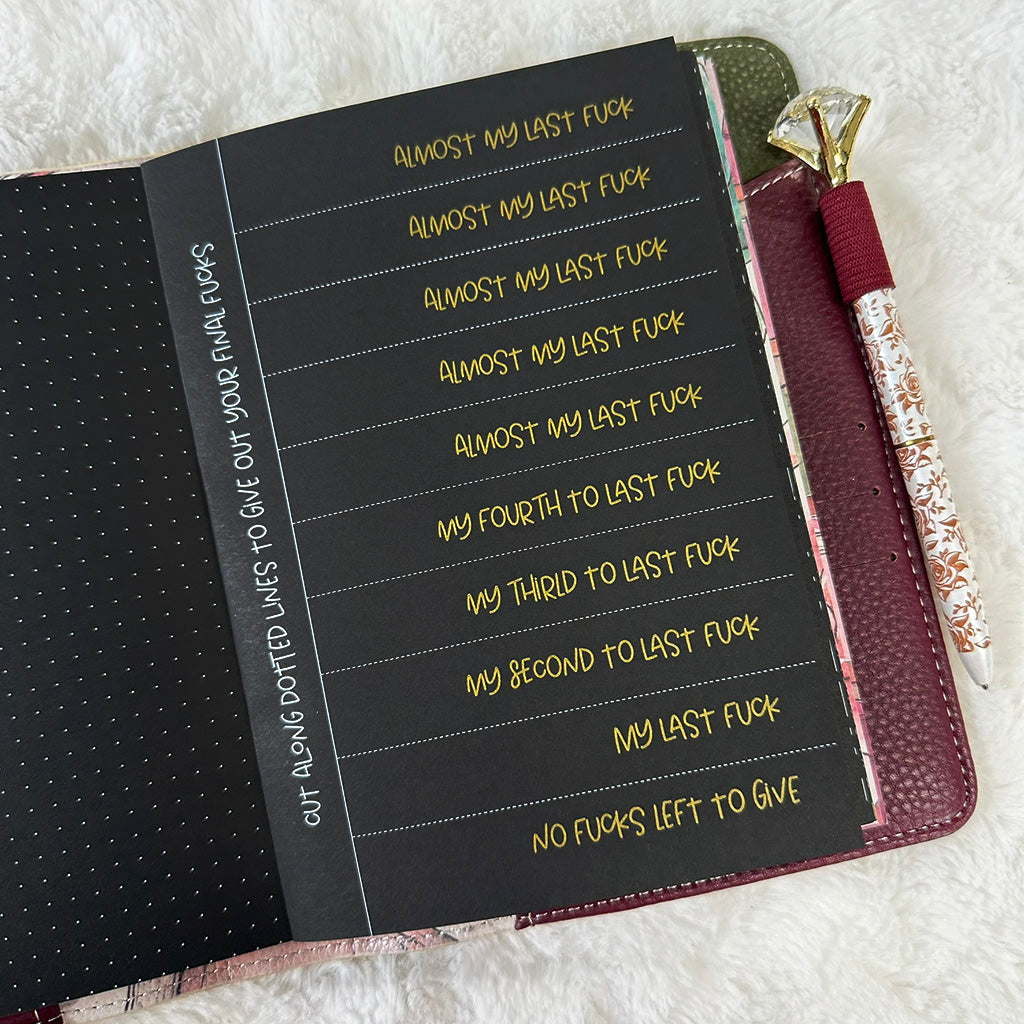 CUT ALONG DOTTED LINES TO GIVE OUT YOUR FINAL FUCKS
ALMOST MY LAST FUCK
ALMOST MY LAST FUCK
ALMOST MY LAST FUCK
ALMOST MY LAST FUCK
ALMOST MY LAST FUCK
MY FOURTH TO LAST FUCK
MY THIRLD TO LAST FUCK
MY SECOND TO LAST FUCK
MY LAST FUCK
NO FUCKS LEFT TO GiVE